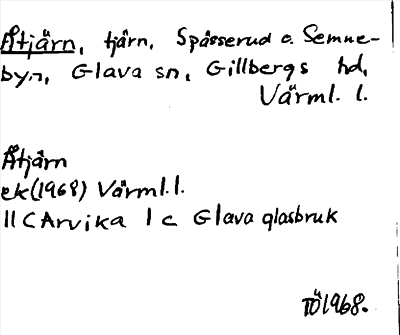 Åtjärn, tjärn, Spässerud o. Semne-
byn, Glava sn, Gillbergs hd,
Värml. l.
Åtjärn
ek(1968) Värml. l.
11 C Arvika 1 c Glava glasbruk
TÖ 1968.